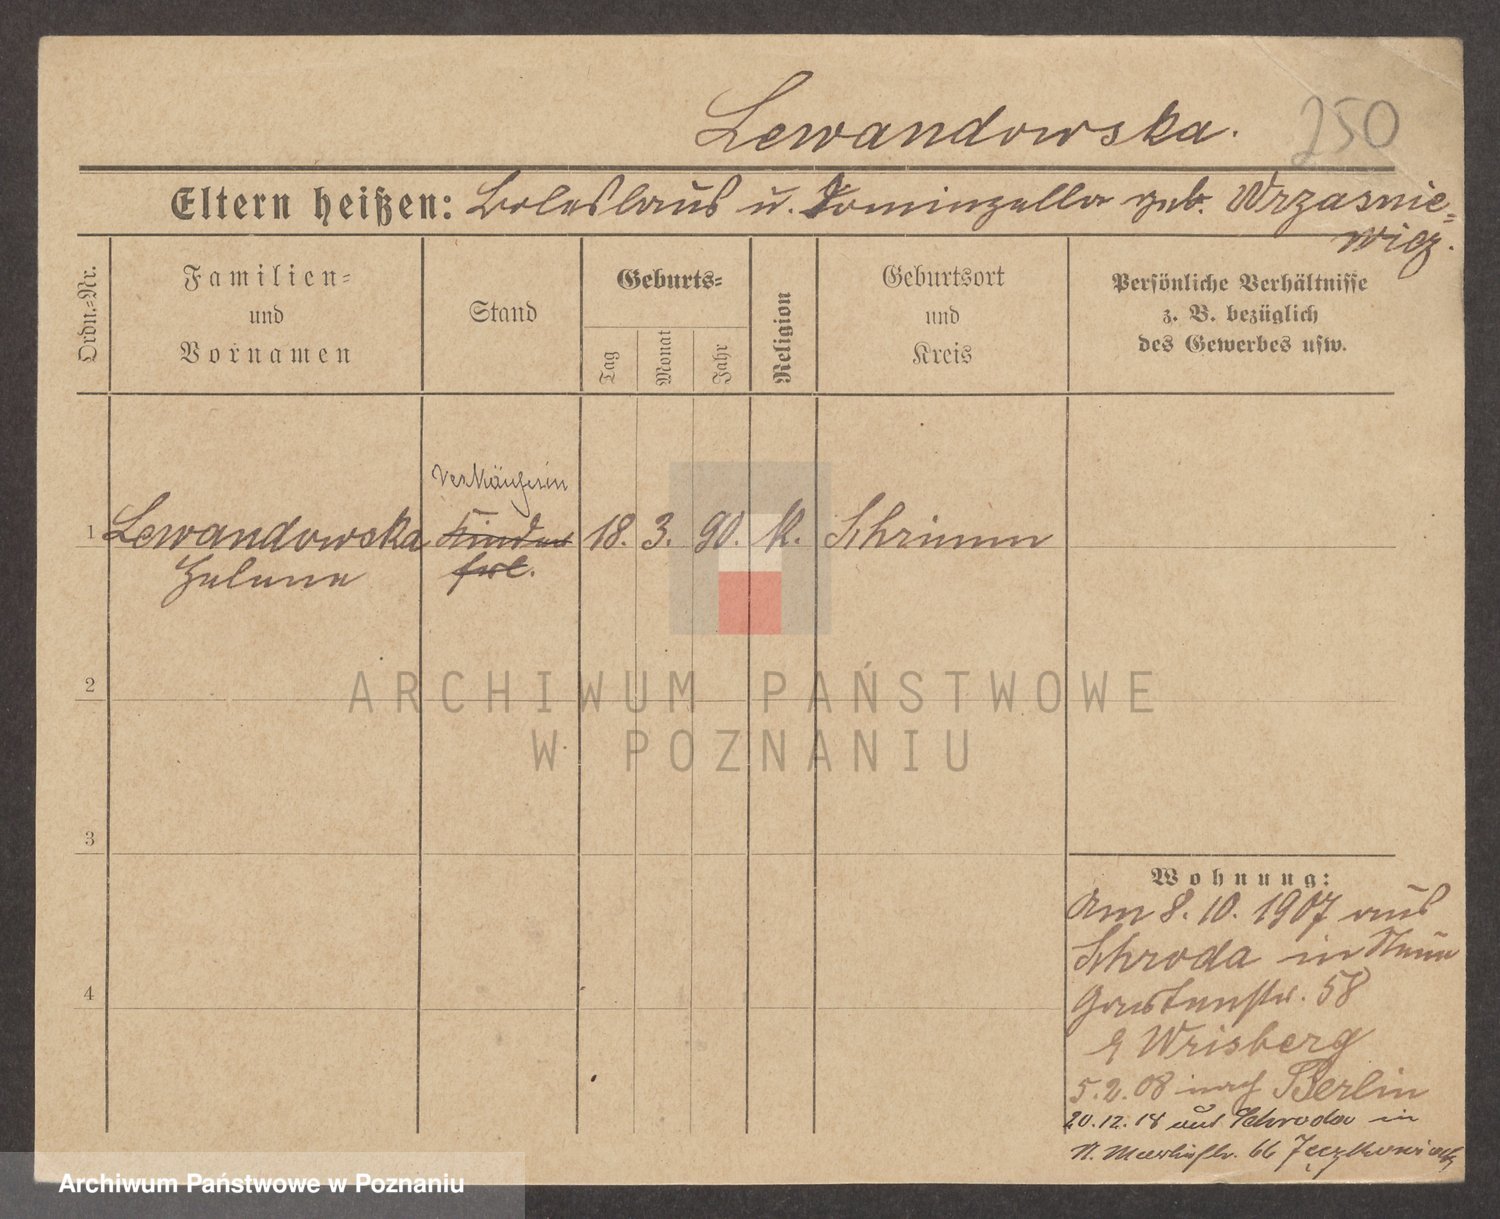 Lewandowska.
250
Eltern heißen: Boleslaus u. Dominzella geb. Wrzasnie=
wicz.
Ordn.=Nr.
Familien=
und
Vornamen
Stand
Geburts=
Tag
Monat
Jahr
Religion
Geburtsort
und
Kreis
Persönliche Verhältnisse
z. B. bezüglich
des Gewerbes usw.
Verkäuferin
1 Lewandowska Kinder 18. 3. 90. K. Schrimm
Helene frl.
2
3
4
ARCHIWUM PAŃSTWOWE
W POZNANIU
Wohnung:
Am 8. 10. 1907 aus
Schroda in
Gartenstr. 58
Wrisberg
5.2.08 nach Berlin
20.12.18 aus Schroda in
66
Archiwum Państwowe w Poznaniu